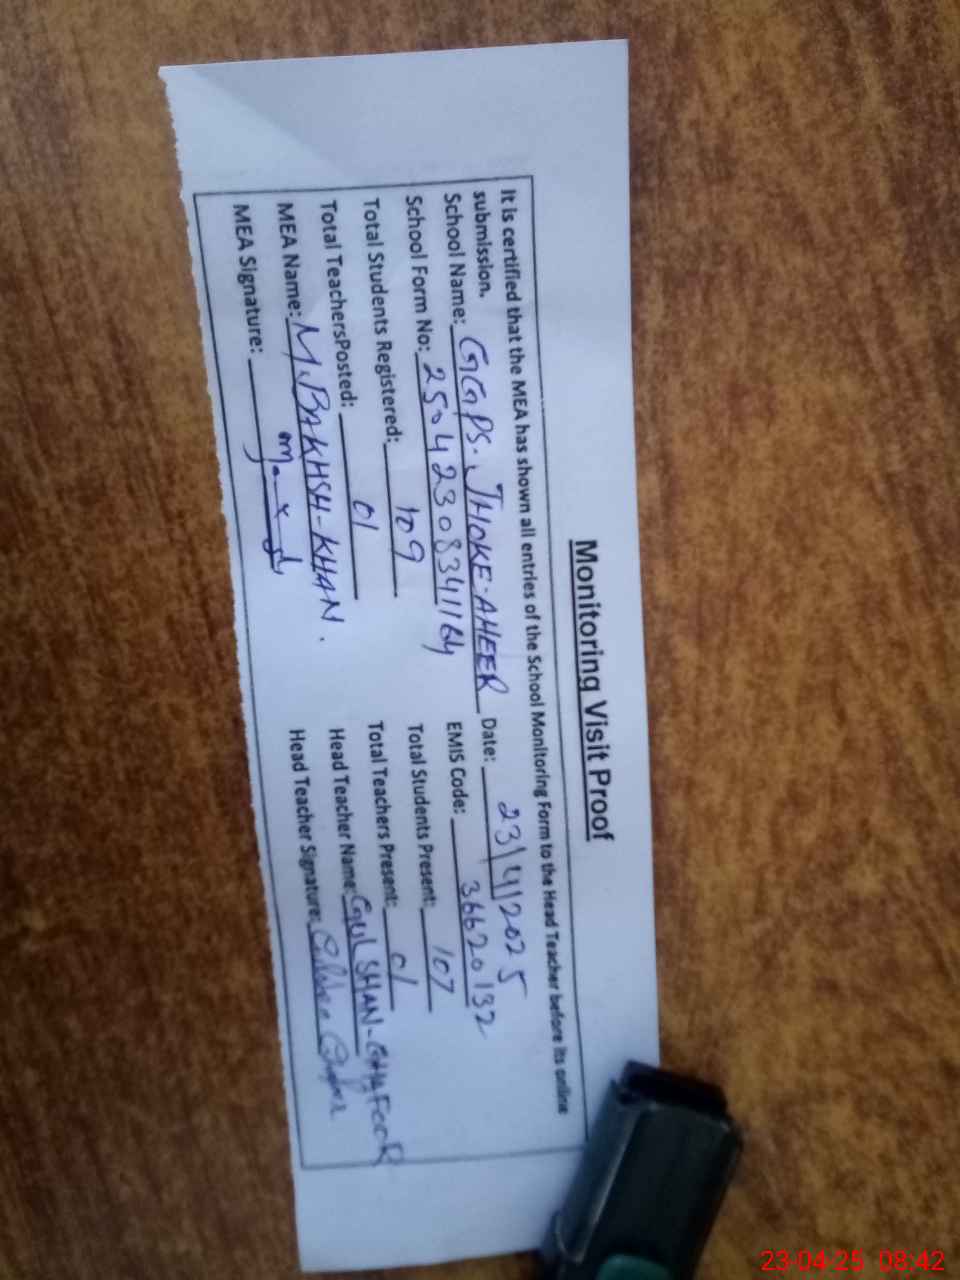 Monitoring Visit Proof
It is certified that the MEA has shown all entries of the School Monitoring Form to the Head Teacher before its online
submission.
School Name: GGPS. JHOKE-AHEER Date: 23/4/2025
School Form No: 25042308341164 EMIS Code: 36620132
Total Students Registered: 109 Total Students Present: 107
Total TeachersPosted: 01 Total Teachers Present: 01
MEA Name: M.BAKHSH-KHAN. Head Teacher Name: GULSHAN-GHAFOOR
MEA Signature: Head Teacher Signature:
23-04-25 08:42